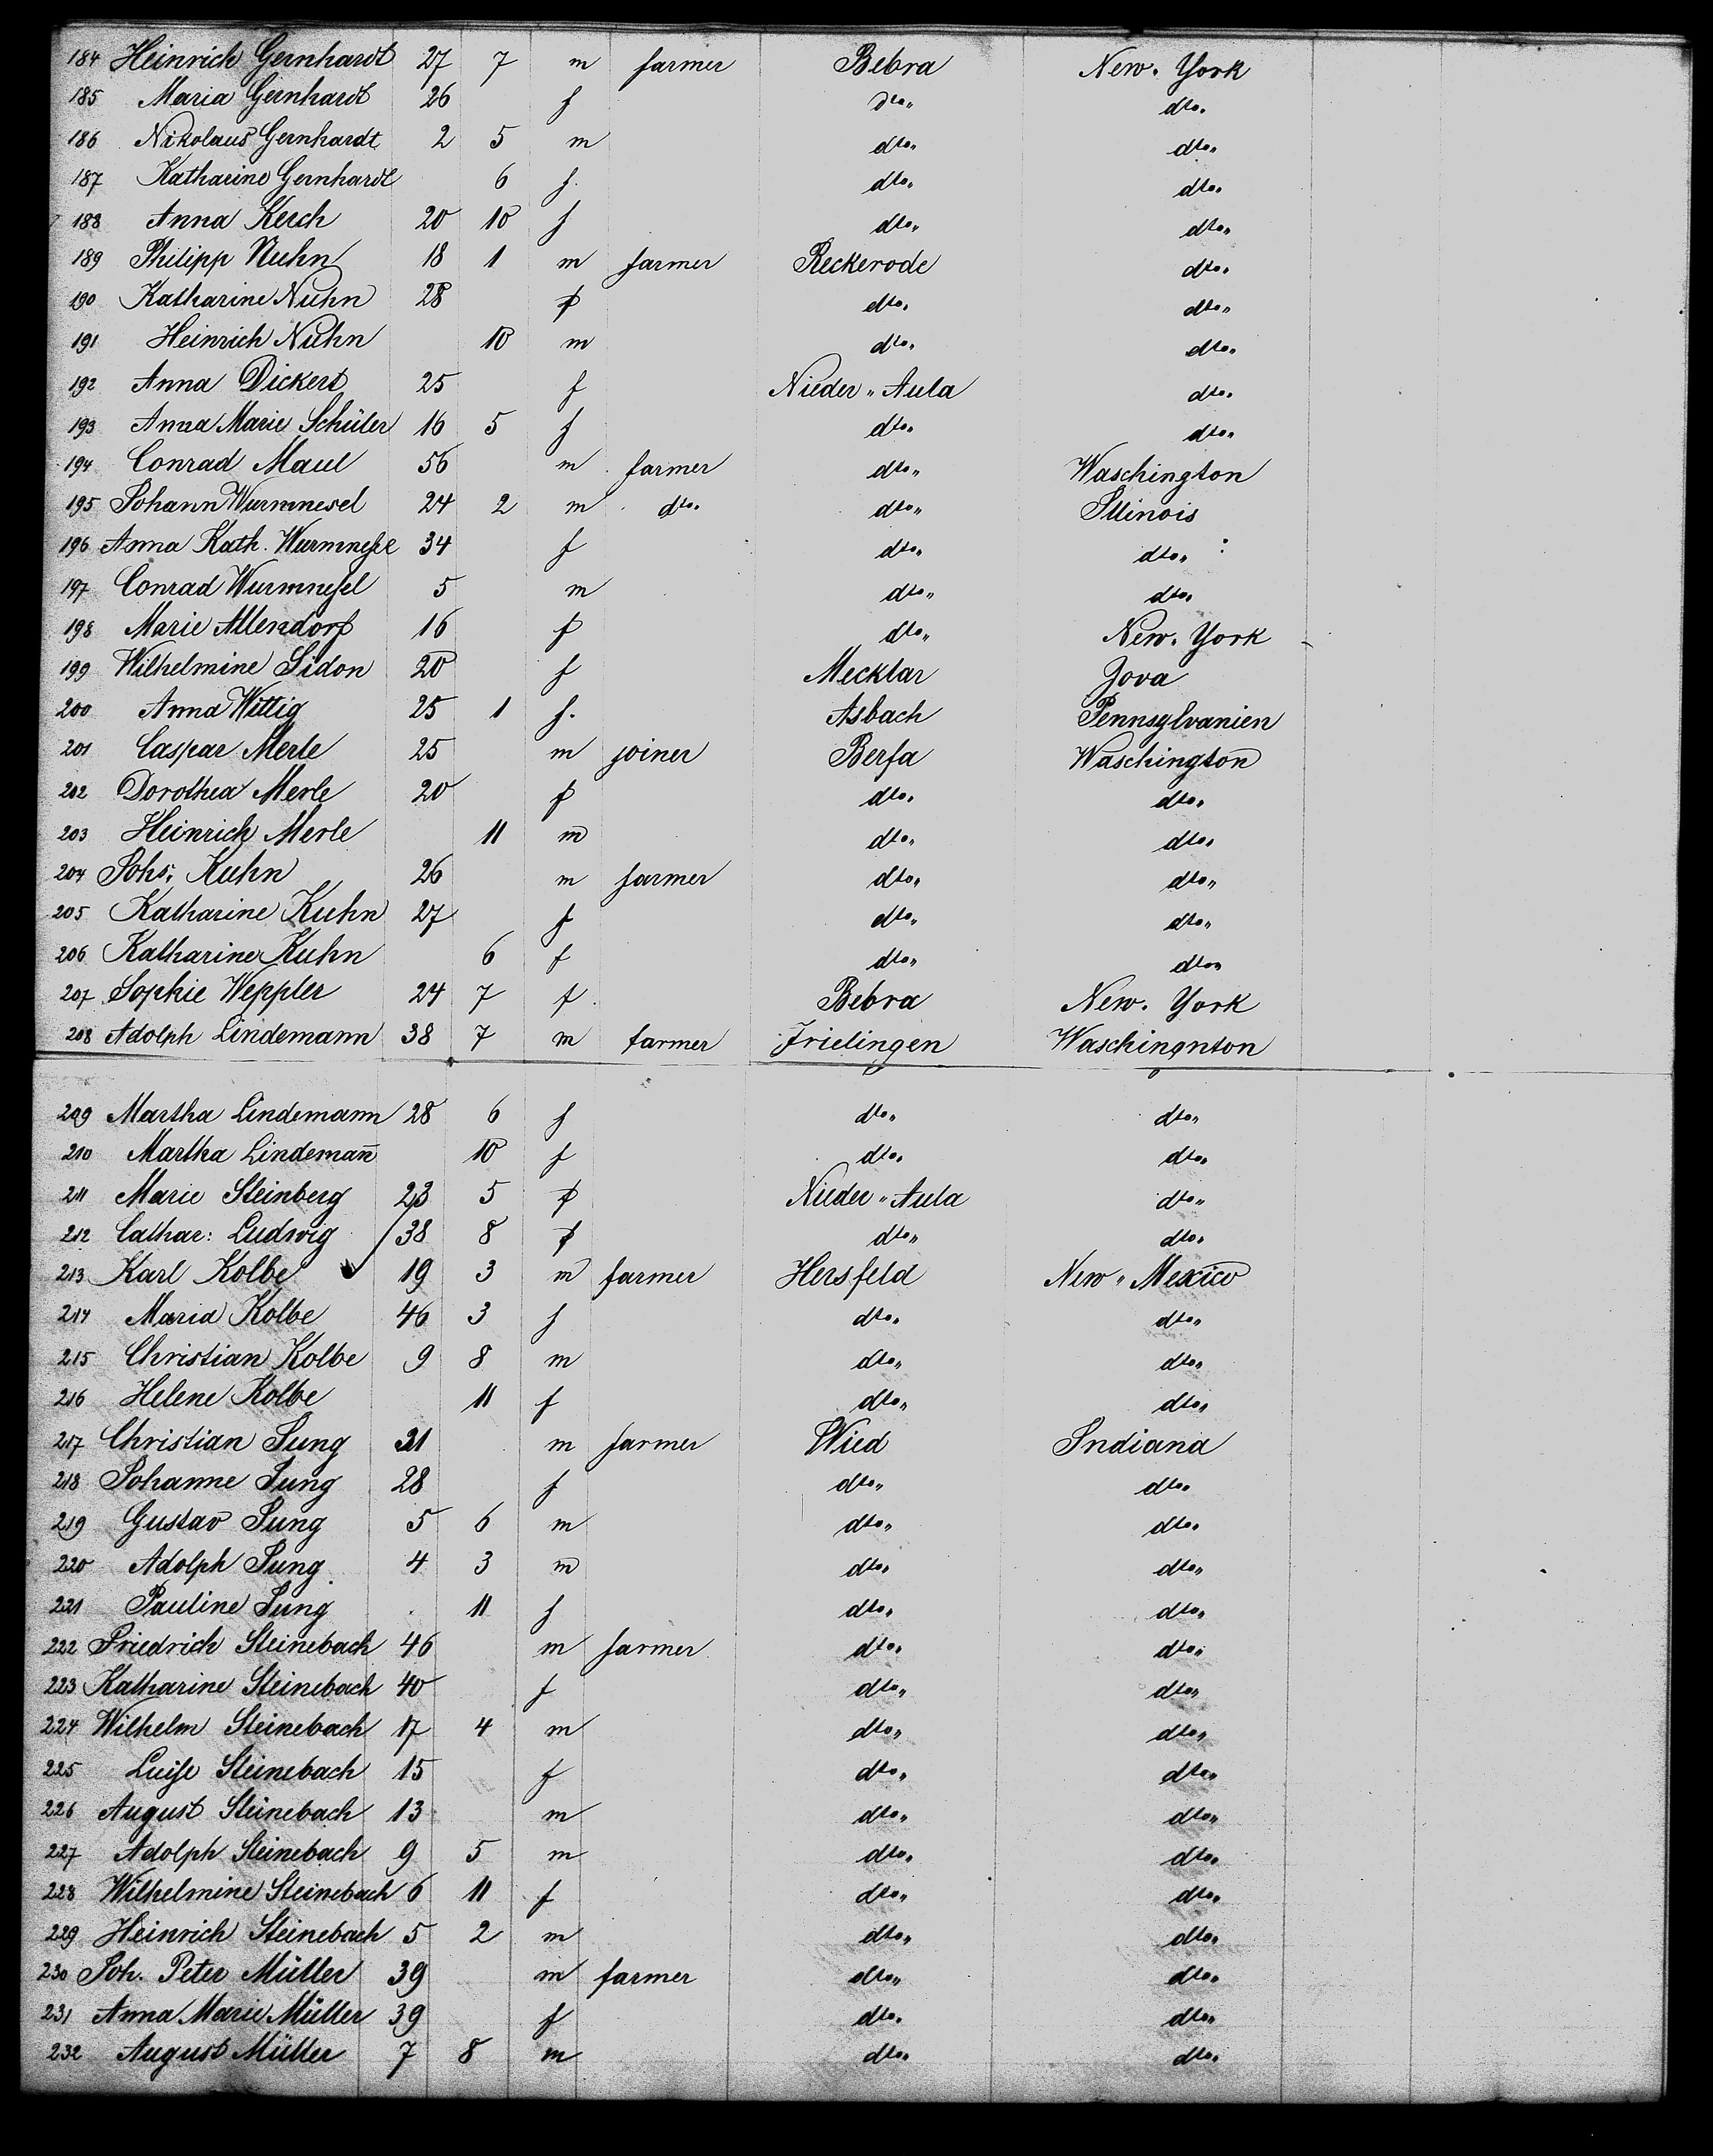 184 Heinrich Gernhardt 27 7 m farmer Bebra New. York
185 Maria Gernhardt 26 f dto. dto.
186 Nikolaus Gernhardt 2 5 m dto. dto.
187 Katharine Gernhardt 6 f. dto. dto.
188 Anna Kerch 20 10 f dto. dto.
189 Philipp Nuhn 18 1 m farmer Reckerode dto.
190 Katharine Nuhn 28 f dto. dto.
191 Heinrich Nuhn 10 m dto. dto.
192 Anna Dickert 25 f Nieder-Aula dto.
193 Anna Marie Schüler 16 5 f dto. dto.
194 Conrad Maul 56 m farmer dto. Waschington
195 Johann Wurmnesel 24 2 m dto. dto. Illinois
196 Anna Kath. Wurmneſel 34 f dto. dto.
197 Conrad Wurmneſel 5 m dto. dto.
198 Marie Allendorf 16 f dto. New. York
199 Wilhelmine Sidon 20 f Mecklar Jova
200 Anna Wittig 25 1 f. Asbach Pennsylvanien
201 Caspar Merle 25 m joiner Berfa Waschington
202 Dorothea Merle 20 f dto. dto.
203 Heinrich Merle 11 m dto. dto.
204 Johs. Kuhn 26 m farmer dto. dto.
205 Katharine Kuhn 27 f dto. dto.
206 Katharine Kuhn 6 f dto. dto.
207 Sophie Weppler 24 7 f Bebra New. York
208 Adolph Lindemann 38 7 m farmer Frielingen Waschingnton
209 Martha Lindemann 28 6 f dto. dto.
210 Martha Lindeman̄ 10 f dto. dto.
211 Marie Steinberg 23 5 f Nieder-Aula dto.
212 Cathar: Ludwig 38 8 f dto. dto.
213 Karl Kolbe 19 3 m farmer Hersfeld New-Mexico
214 Maria Kolbe 46 3 f dto. dto.
215 Christian Kolbe 9 8 m dto. dto.
216 Helene Kolbe 11 f dto. dto.
217 Christian Jung 31 m farmer Wied Indiana
218 Johanne Jung 28 f dto. dto.
219 Gustav Jung 5 6 m dto. dto.
220 Adolph Jung 4 3 m dto. dto.
221 Pauline Jung 11 f dto. dto.
222 Friedrich Steinebach 46 m farmer dto. dto.
223 Katharine Steinebach 40 f dto. dto.
224 Wilhelm Steinebach 17 4 m dto. dto.
225 Luiſe Steinebach 15 f dto. dto.
226 August Steinebach 13 m dto. dto.
227 Adolph Steinebach 9 5 m dto. dto.
228 Wilhelmine Steinebach 6 11 f dto. dto.
229 Heinrich Steinebach 5 2 m dto. dto.
230 Joh. Peter Müller 39 m farmer dto. dto.
231 Anna Marie Müller 39 f dto. dto.
232 August Müller 7 8 m dto. dto.